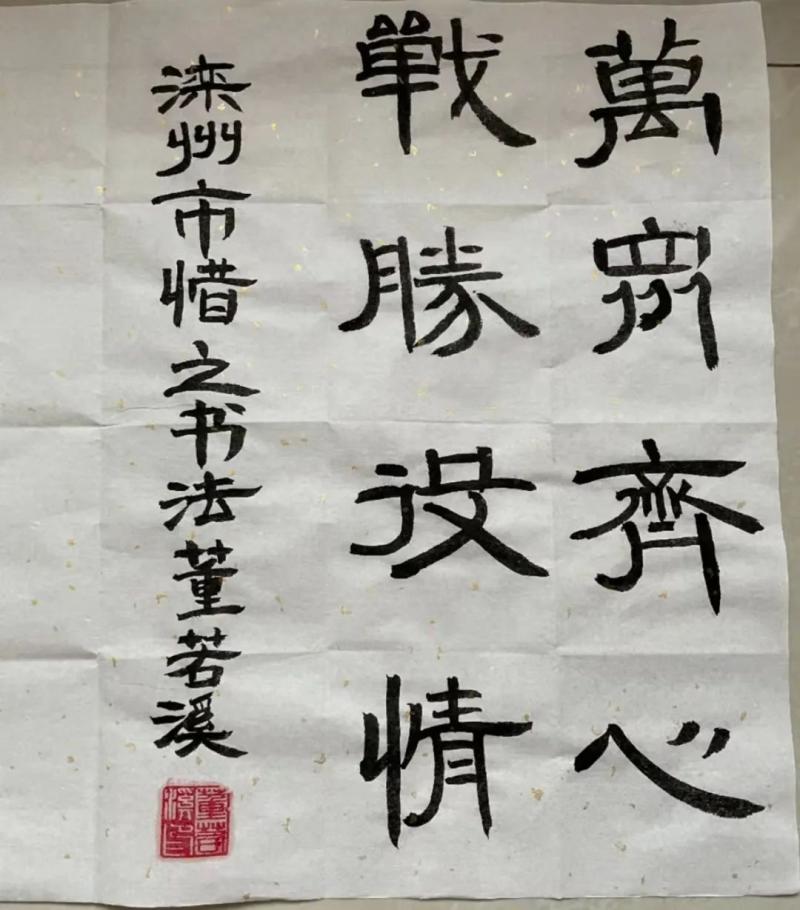 萬眾齊心
戰勝役情
滦州市惜之书法董若溪
董若溪印